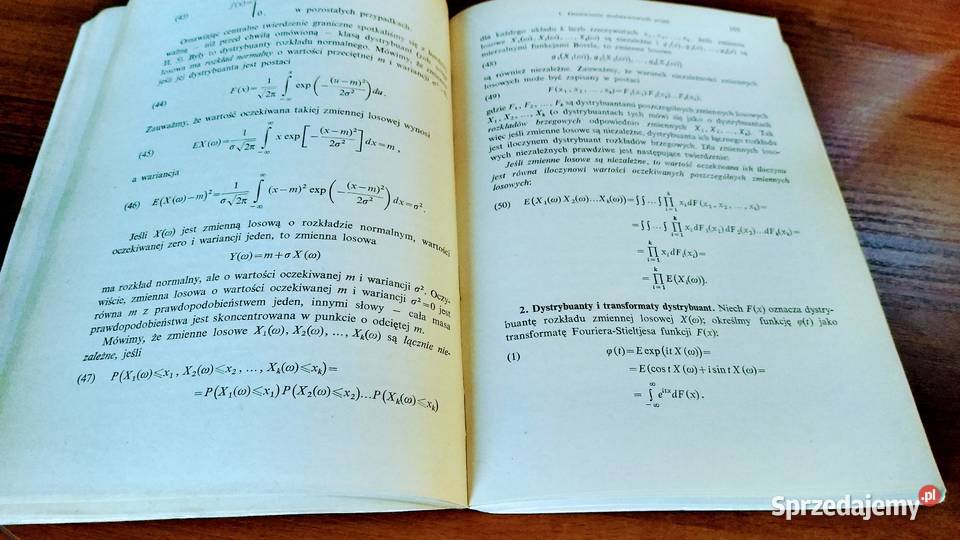 (43)
f(x)=
0
w pozostałych przypadkach.
Omawiając centralne twierdzenie graniczne spotkaliśmy się z
ważną — niż przed chwilą omówioną — klasą dystrybuant (zob.
II. 5). Były to dystrybuanty rozkładu normalnego. Mówimy, że zmienna
losowa ma rozkład normalny o wartości przeciętnej m i wariancji σ²,
jeśli jej dystrybuanta jest postaci
(44) F(x)= 1/√2π ∫_{-∞}^{x} exp(−(u−m)²/2σ²)du.
Zauważmy, że wartość oczekiwana takiej zmiennej losowej wynosi
(45) EX(ω)= 1/σ√2π ∫_{-∞}^{∞} x exp[−(x−m)²/2σ²]dx=m,
a wariancja
(46) E(X(ω)−m)²= 1/σ√2π ∫_{-∞}^{∞} (x−m)² exp(−(x−m)²/2σ²)dx=σ².
Jeśli X(ω) jest zmienną losową o rozkładzie normalnym, wartości
oczekiwanej zero i wariancji jeden, to zmienna losowa
Y(ω)=m+σX(ω)
ma rozkład normalny, ale o wartości oczekiwanej m i wariancji σ². Oczy-
wiście, zmienna losowa o wartości oczekiwanej m i wariancji σ²=0 jest
równa m z prawdopodobieństwem jeden, innymi słowy — cała masa
prawdopodobieństwa jest skoncentrowana w punkcie o odciętej m.
Mówimy, że zmienne losowe X₁(ω), X₂(ω), ..., Xₖ(ω) są łącznie nie-
zależne, jeśli
(47) P(X₁(ω)⩽x₁, X₂(ω)⩽x₂, ..., Xₖ(ω)⩽xₖ)=
=P(X₁(ω)⩽x₁)P(X₂(ω)⩽x₂)...P(Xₖ(ω)⩽xₖ)
dla każdego układu k liczb rzeczywistych x₁, x₂, ..., xₖ. Jeśli zmienne
losowe X₁(ω), X₂(ω), ..., Xₖ(ω) są niezależne i
mierzalnymi funkcjami Borela, to zmienne losowe
(48)
są również niezależne. Zauważmy, że warunek niezależności zmiennych
losowych może być zapisany w postaci
(49) F(x₁, x₂, ..., xₖ)=F₁(x₁)F₂(x₂)...Fₖ(xₖ),
gdzie F₁, F₂, ..., Fₖ są dystrybuantami poszczególnych zmiennych losowych
X₁, X₂, ..., Xₖ (o dystrybuantach tych mówi się jako o dystrybuantach
rozkładów brzegowych odpowiednio zmiennych X₁, X₂, ..., Xₖ). Tak
więc jeśli zmienne losowe są niezależne, dystrybuanta ich łącznego rozkładu
jest iloczynem dystrybuant rozkładów brzegowych. Dla zmiennych loso-
wych niezależnych prawdziwe jest następujące twierdzenie:
Jeśli zmienne losowe są niezależne, to wartość oczekiwana ich iloczynu
jest równa iloczynowi wartości oczekiwanych poszczególnych zmiennych
losowych:
(50) E(X₁(ω)X₂(ω)...Xₖ(ω))=∫∫...∫∏_{i=1}^{k} xᵢdF(x₁, x₂, ..., xₖ)=
=∫∫...∫∏_{i=1}^{k} xᵢdF₁(x₁)dF₂(x₂)...dFₖ(xₖ)=
=∏_{i=1}^{k} xᵢdFᵢ(xᵢ)=
=∏_{i=1}^{k} E(Xᵢ(ω)).
2. Dystrybuanty i transformaty dystrybuant. Niech F(x) oznacza dystry-
buantę rozkładu zmiennej losowej X(ω); określmy funkcję φ(t) jako
transformatę Fouriera-Stieltjesa funkcji F(x):
(1) φ(t)=E exp(itX(ω))=
=E(cos tX(ω)+i sin tX(ω)=
=∫_{-∞}^{∞} e^{itx}dF(x).
Sprzedajemy.pl